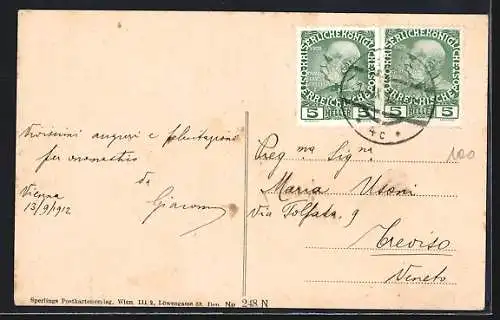 KAISERLICHE KÖNIGLICHE ÖSTERREICHISCHE POST
5 HELLER 5
KAISERLICHE KÖNIGLICHE ÖSTERREICHISCHE POST
5 HELLER 5
4c *
100
Vivissimi auguri e felicitazione
per onomastico
da
Giacomo
Vienna
13/9/1912
Preg.ma Sig.na
Maria
Via 9
Treviso
Veneto
Sperlings Postkartenverlag, Wien, III/2, Löwengasse Dep. No 248 N